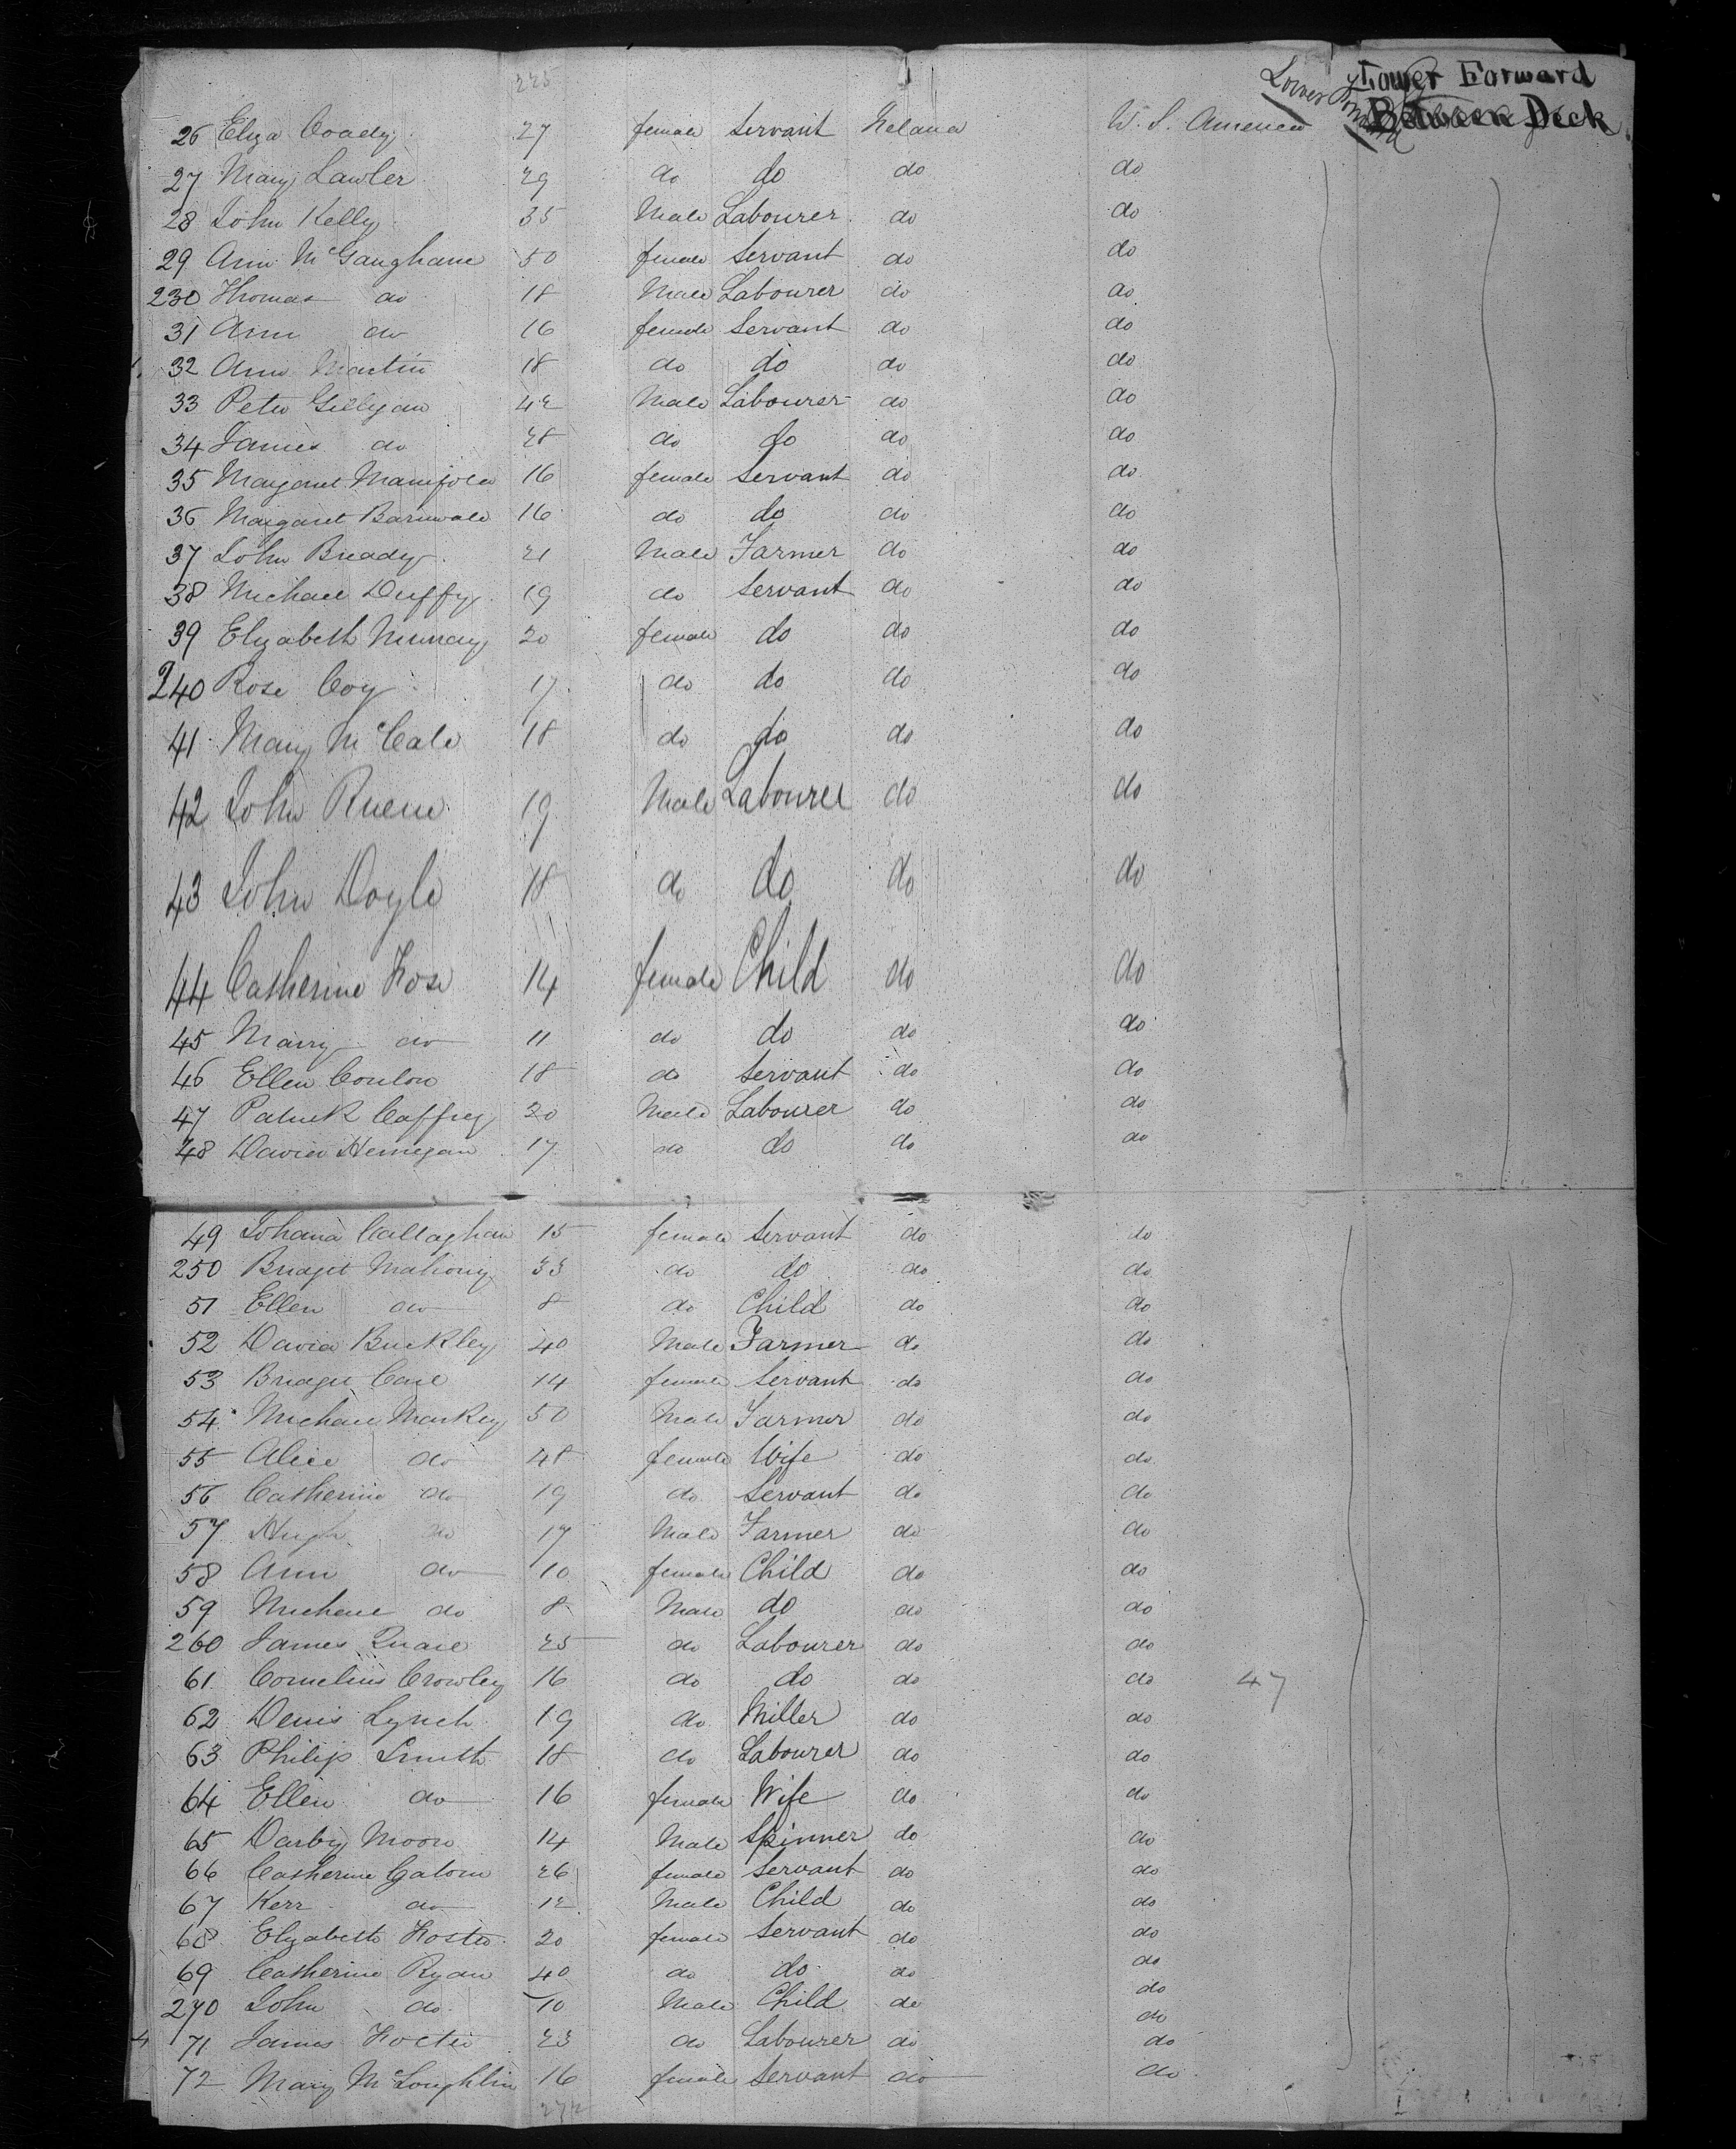 225
Lower Forward
Between Deck
26 Eliza Coady 27 female Servant Ireland U. S. America
27 Mary Lawler 29 do do do do
28 John Kelly 35 Male Labourer do do
29 Ann McGaughane 50 female Servant do do
230 Thomas do 18 Male Labourer do do
31 Ann do 16 female Servant do do
32 Ann Martin 18 do do do do
33 Peter Gilligan 42 Male Labourer do do
34 James do 28 do do do do
35 Margaret Manifold 16 female Servant do do
36 Margaret Barnwale 16 do do do do
37 John Bready 21 Male Farmer do do
38 Michael Duffy 19 do Servant do do
39 Elizabeth Murray 20 female do do do
240 Rose Coy 17 do do do do
41 Mary McCale 18 do do do do
42 John 19 Male Labourer do do
43 John Doyle 18 do do do do
44 Catherine 14 female Child do do
45 Marry do 11 do do do do
46 Ellen Conlon 18 do Servant do do
47 Patrick Caffrey 20 Male Labourer do do
48 David Hennegan 17 do do do do
49 Johana Callaghan 15 female Servant do do
250 Bridget Mahony 33 do do do do
51 Ellen do 8 do Child do do
52 David Buckley 40 Male Farmer do do
53 Bridget 14 female Servant do do
54 Michael Markey 50 Male Farmer do do
55 Alice do 48 female Wife do do
56 Catherine do 19 do Servant do do
57 Hugh do 17 Male Farmer do do
58 Ann do 10 female Child do do
59 Michael do 8 Male do do do
260 James Quail 25 do Labourer do do
61 Cornelius Crowley 16 do do do do 47
62 Denis Lynch 19 do Miller do do
63 Philip Smith 18 do Labourer do do
64 Ellen do 16 female Wife do do
65 Darby Moore 14 Male Spinner do do
66 Catherine 26 female Servant do do
67 Kerr do 12 Male Child do do
68 Elizabeth Foster 20 female Servant do do
69 Catherine Ryan 40 do do do do
270 John do 10 Male Child do do
do
71 James 23 do Labourer do do
72 Mary McLoughlin 16 female Servant do do
272